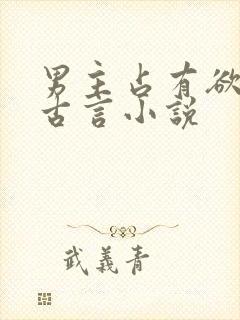 男主占有欲
古言小说
武義青